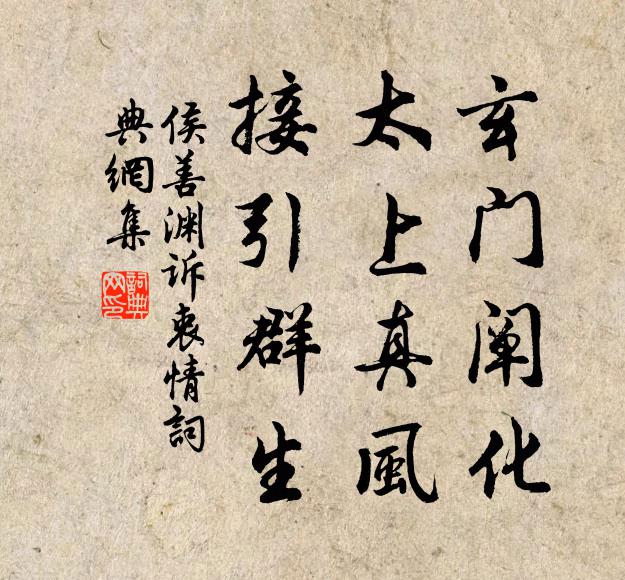 玄门阐化
太上真風
接引群生
侯善渊诉衷情詞
典網集
詞典網印